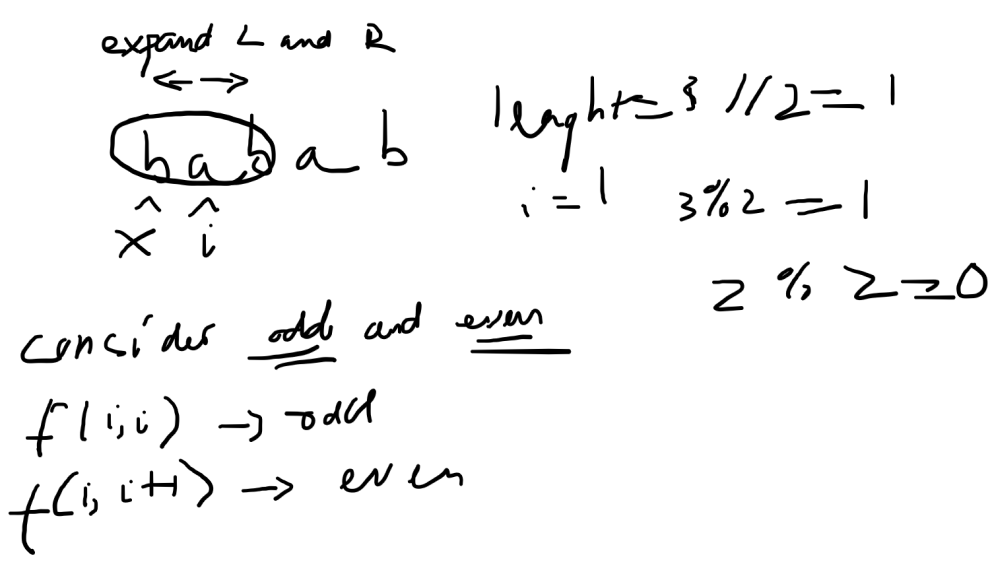 expand L and R
b a b a b
x i
lenght = 3 // 2 = 1
i = 1 3 % 2 = 1
2 % 2 = 0
consider odd and even
f(i,i) → odd
f(i, i+1) → even